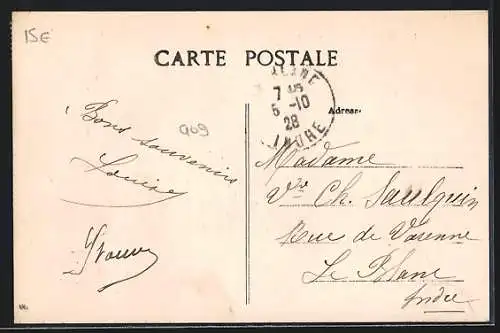 15€
CARTE POSTALE
7 45
5 -10
28
INDRE
Adresse
Bons souvenirs
Louise
909
Madame
Vve Ch. Saulquin
Rue de Varenne
Le Blanc
Indre